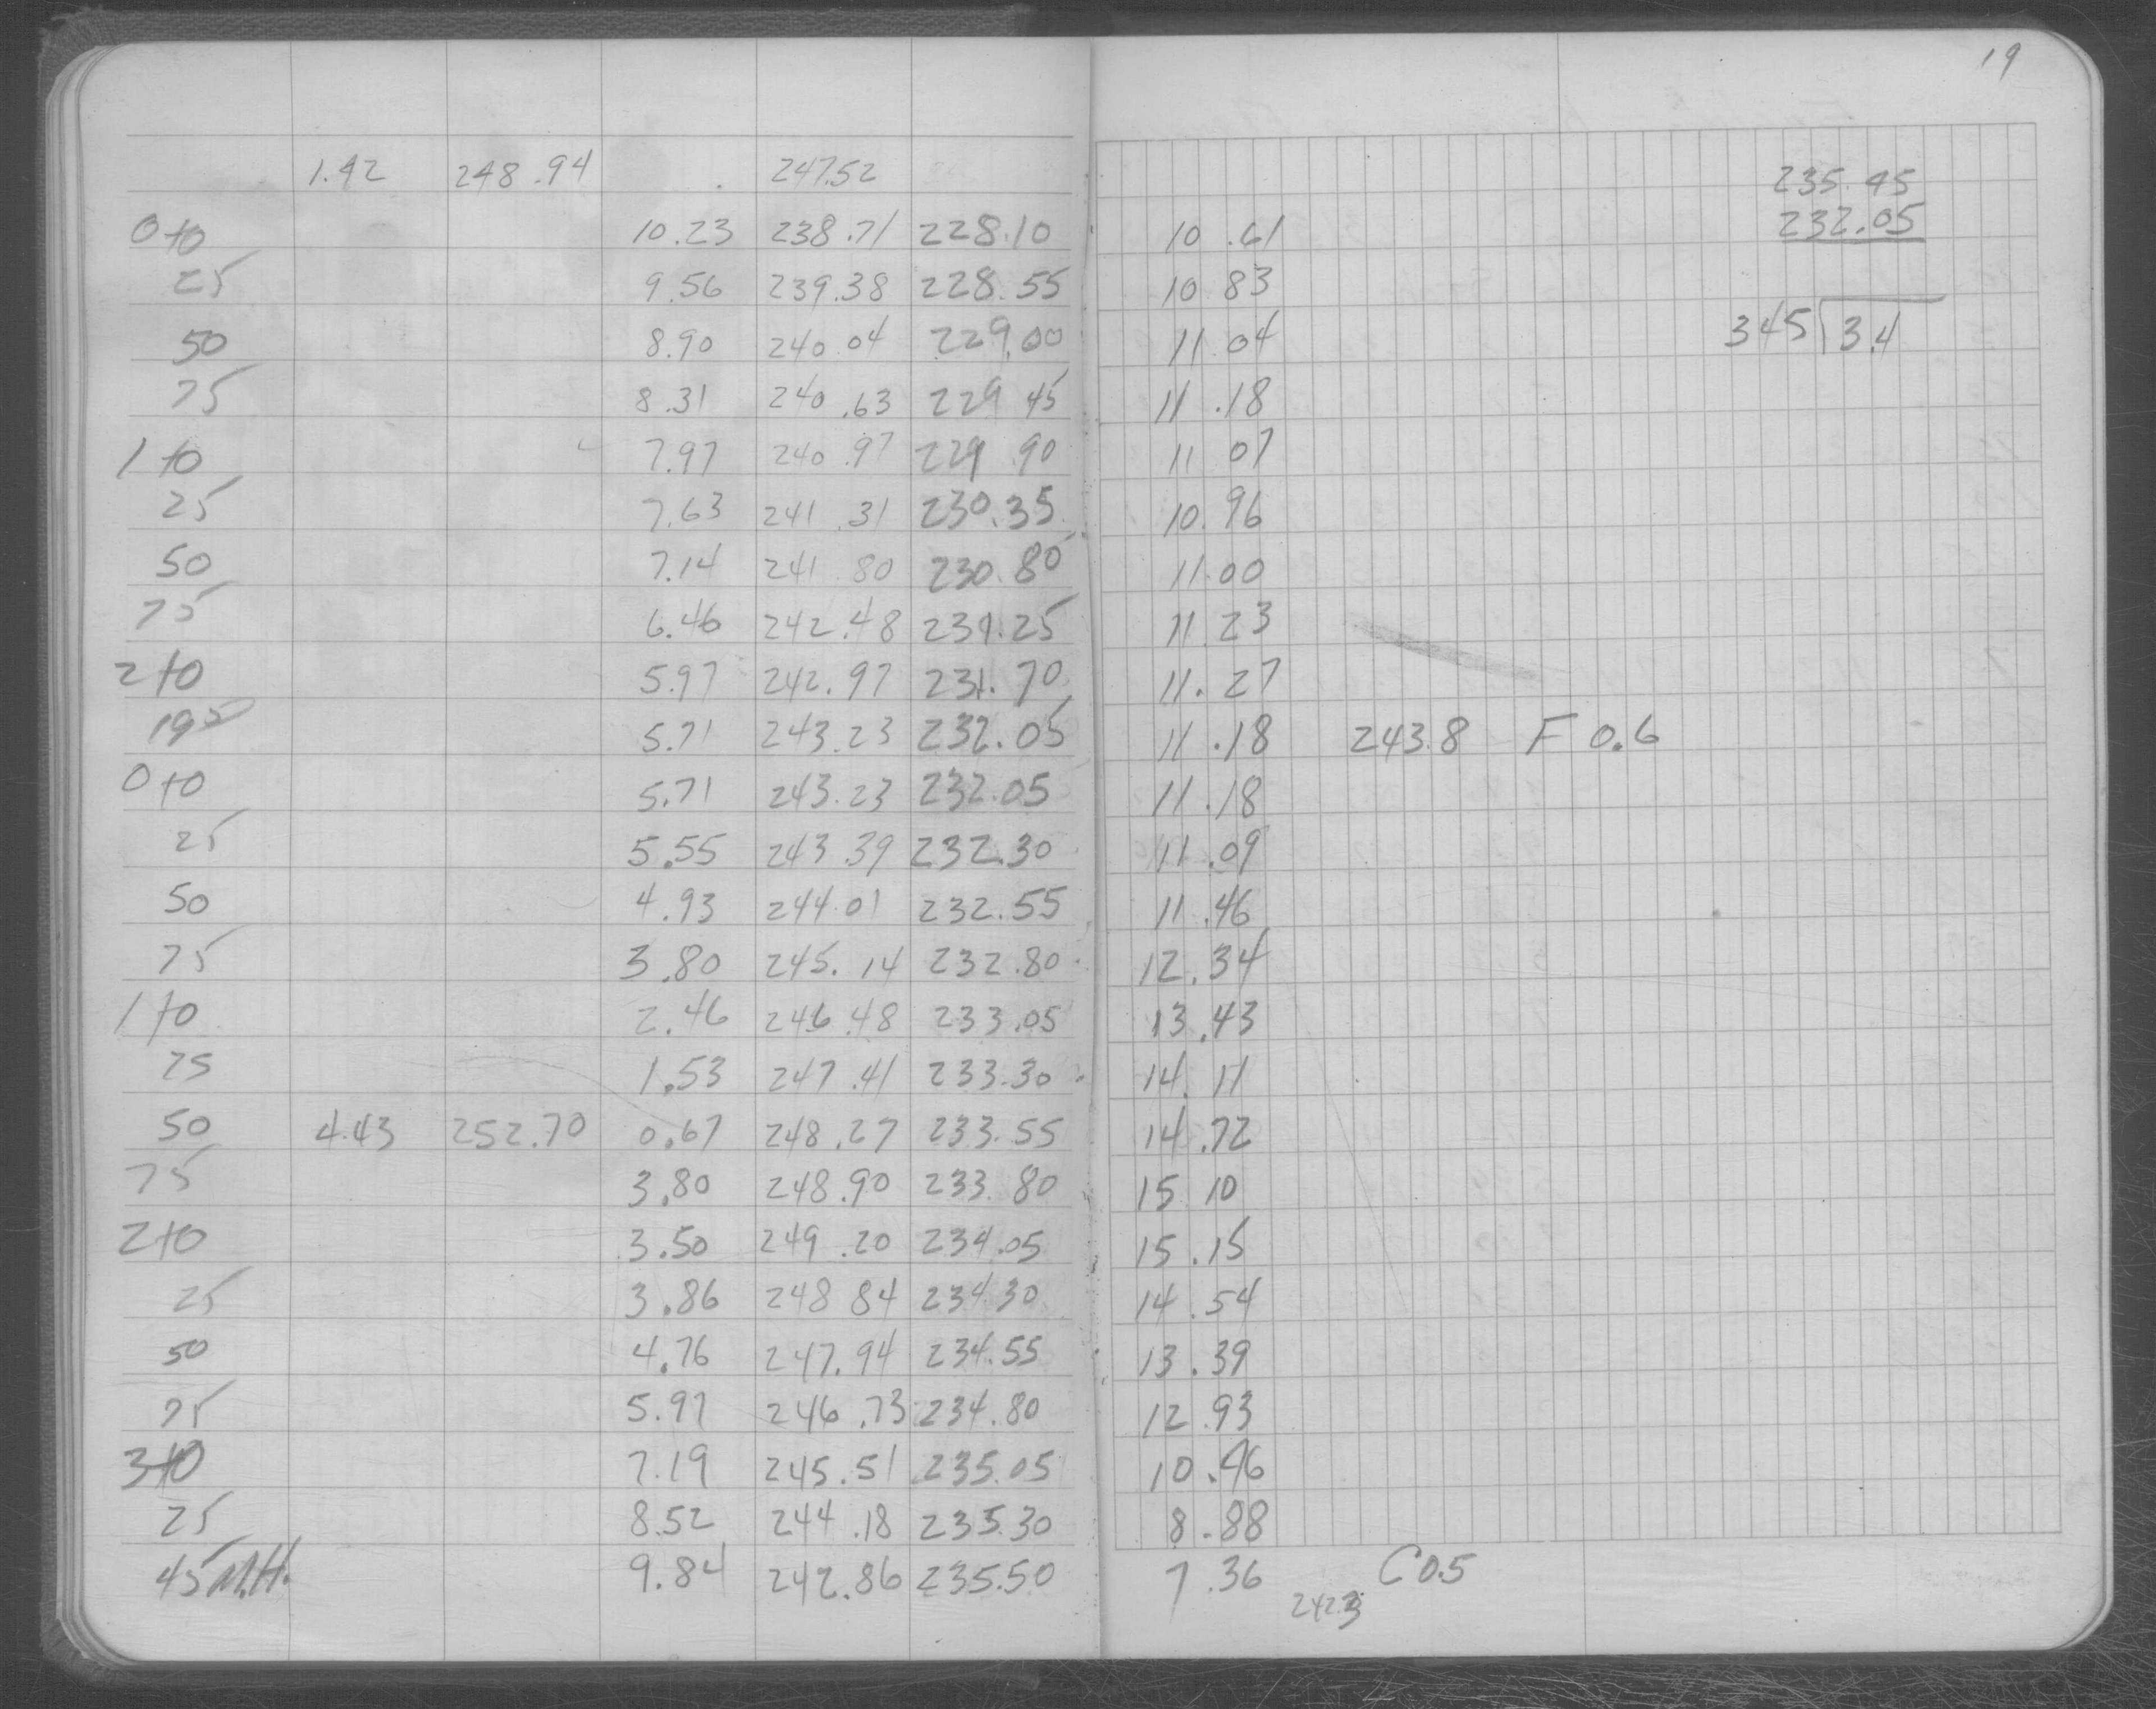 19
1.42 248.94 247.52
235.45
0+0 10.23 238.71 228.10 10.61
232.05
25 9.56 239.38 228.55 10 83
50 8.90 240 04 229.00 11 04
345 3.4
75 8.31 240.63 229 45 11.18
1+0 7.97 240.97 229 90 11 07
25 7.63 241 31 230.35 10.96
50 7.14 241 80 230.80 11.00
75 6.46 242.48 231.25 11 23
2+0 5.97 242.97 231.70 11.27
195 5.71 243.23 232.05 11.18 243.8 F 0.6
0+0 5.71 243.23 232.05 11.18
25 5.55 243 39 232.30 11.09
50 4.93 244.01 232.55 11.46
75 3.80 245.14 232.80 12.34
1+0 2.46 246.48 233.05 13.43
25 1.53 247.41 233.30 14.11
50 4.43 252.70 0.67 248.27 233.55 14.72
75 3.80 248.90 233.80 15 10
2+0 3.50 249.20 234.05 15.15
25 3.86 248 84 234.30 14.54
50 4.76 247.94 234.55 13.39
75 5.97 246.73 234.80 12.93
3+0 7.19 245.51 235.05 10.46
25 8.52 244.18 235.30 8.88
45 M.H. 9.84 242.86 235.50 7.36 C 0.5
242.3